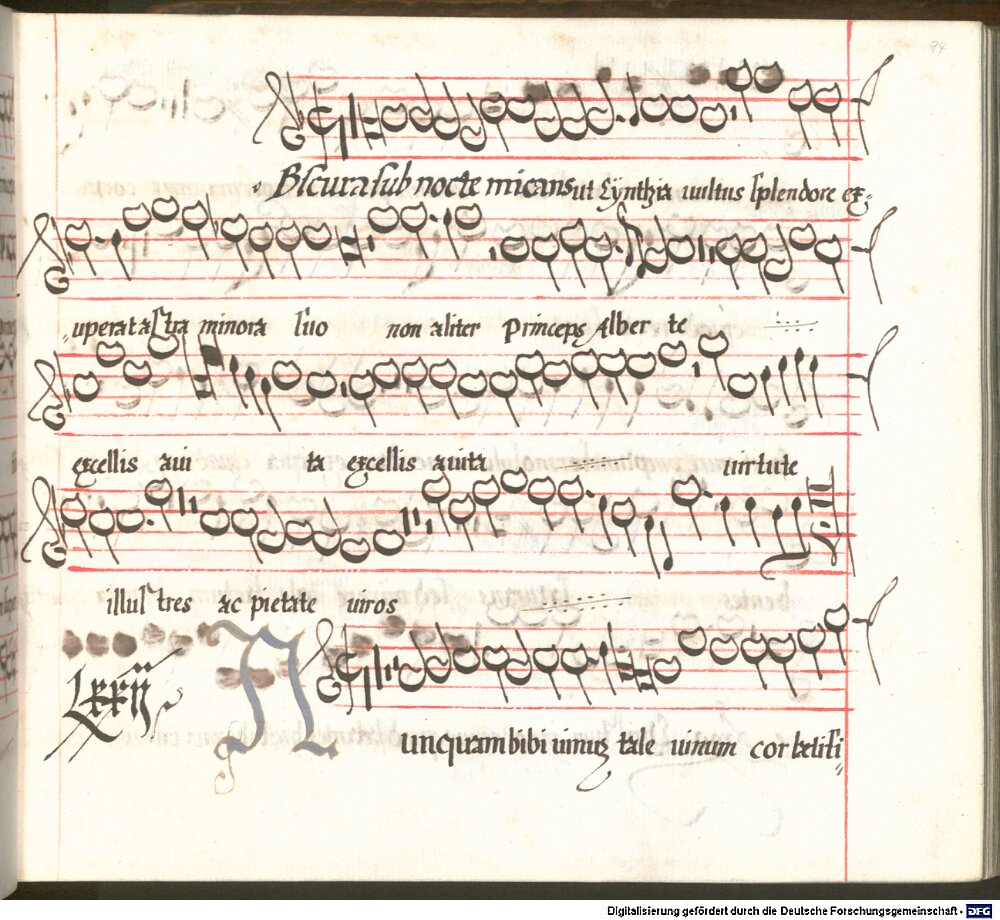 74
Bscura sub nocte micans ut Cynthia vultus splendore ex-
uperat astra minora suo non aliter princeps Alberte
excellis aui ta excellis auita uirtute
illustres ac pietate uiros
LXXII
N
unquam bibi uinum tale uinum cor lætifi
Digitalisierung gefördert durch die Deutsche Forschungsgemeinschaft - DFG